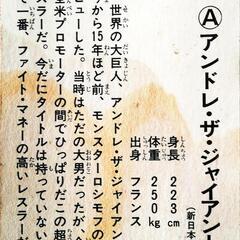 Ⓐアンドレ・ザ・ジャイアント
(新日本
身長 223cm
体重 250kg
出身 フランス
世界の大巨人、アンドレ・ザ・ジャイアン
から15年ほど前、モンスターロシモフの
ビューした。当時はただの大男だったが、
全米プロモーターの間でひっぱりだこの超
スラーだ。今だにタイトルは持っていない
で一番、ファイト・マネーの高いレスラーだ